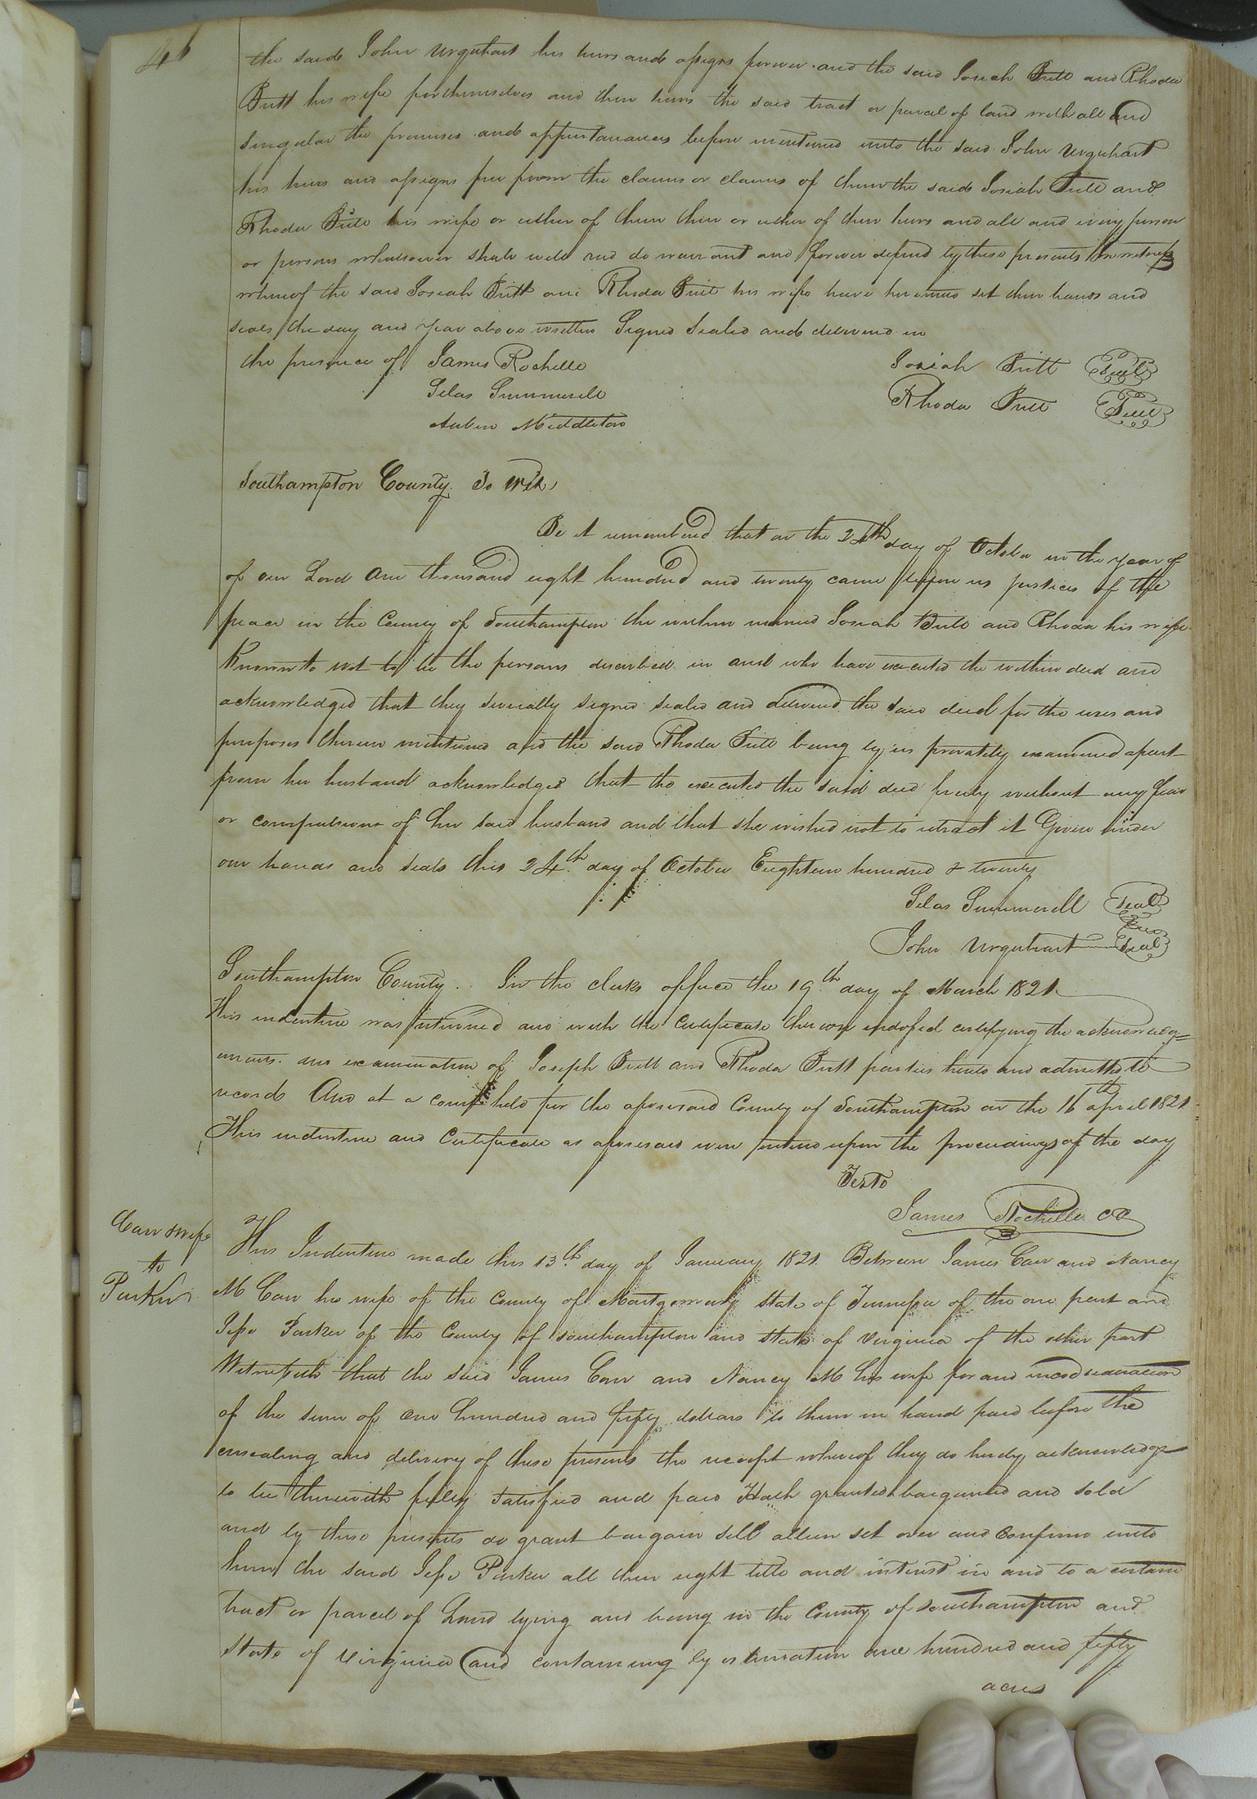 46
the said John Urquhart his heirs and assigns forever and the said Josiah Britt and Rhoda
Britt his wife for themselves and their heirs the said tract or parcel of land with all and
singular the premises and appurtanances before mentioned unto the said John Urquhart
his heirs and assigns free from the claims or claims of them the said Josiah Britt and
Rhoda Britt his wife or either of them their or either of their heirs and all and every person
or persons whatsoever shall will and do warrant and forever defend by these presents In witness
whereof the said Josiah Britt and Rhoda Britt his wife have hereunto set their hands and
seals the day and year above written Signed Sealed and delivered in
the presence of James Rochelle Josiah Britt Seal
Silas Summerell Rhoda Britt Seal
Middleton
Southampton County To Wit,
Be it remembered that on the 24th day of October in the year of
of our Lord One thousand eight hundred and twenty came before us justices of the
peace in the County of Southampton the within named Josiah Britt and Rhoda his wife
Known to us to be the persons described in and who have executed the within deed and
acknowledged that they severally signed sealed and delivered the said deed for the uses and
purposes therein mentioned and the said Rhoda Britt being by us privately examined apart
from her husband acknowledged that she executed the said deed freely without any fear
or compulsion of her said husband and that she wished not to retract it Given under
our hands and seals this 24th day of October Eighteen hundred & twenty
Silas Summerell Seal
John Urquhart Seal
Southampton County. In the clerks office the 19th day of March 1821
This indenture was returned and with the Certificate thereon endorsed certifying the acknowledg=
ments and examination of Joseph Britt and Rhoda Britt parties hereto and admitted to
record And at a court held for the aforesaid County of Southampton on the 16th april 1821
This indenture and Certificate as aforesaid were entered upon the proceedings of the day
Teste
James Rochelle CC
Carr & wife
to
Parker
This Indenture made this 13th day of January 1821 Between James Carr and Nancy
M Carr his wife of the County of Montgomery state of Tennessee of the one part and
Jesse Parker of the County of Southampton and state of Virginia of the other part
Witnesseth that the said James Carr and Nancy M his wife for and in consideration
of the sum of One hundred and fifty dollars to them in hand paid before the
ensealing and delivery of these presents the receipt whereof they do hereby acknowledge
to be therewith fully satisfied and paid Hath granted bargained and sold
and by these presents do grant bargain sell alien set over and Confirm unto
him the said Jesse Parker all their right title and interest in and to a certain
tract or parcel of Land lying and being in the County of Southampton and
State of Virginia and containing by estimation one hundred and fifty
acres